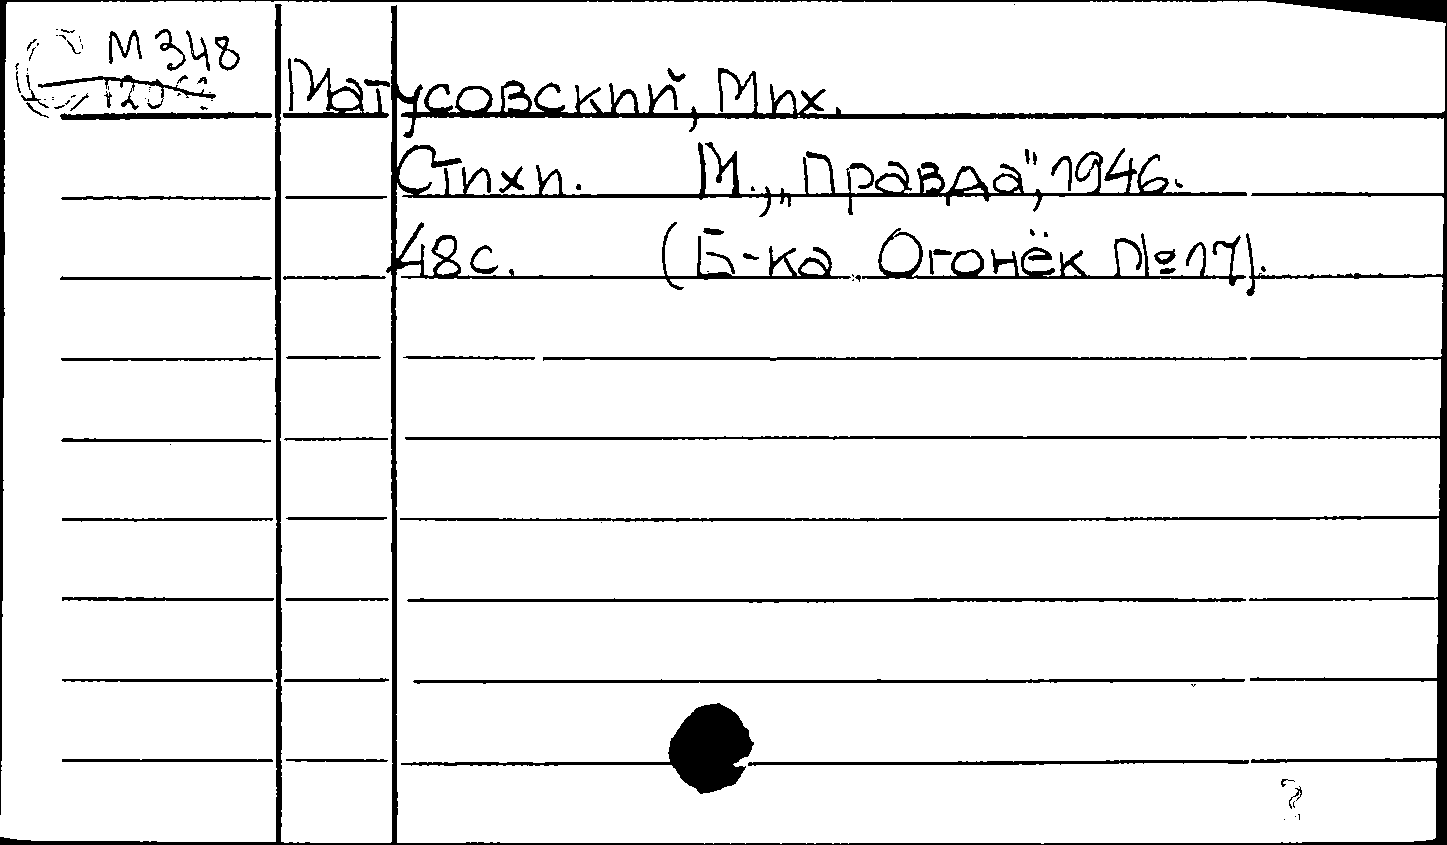 М348
Матусовский, Мих.
Стихи. М., „Правда", 1946.
48 с. (Б-ка Огонёк №17).
?